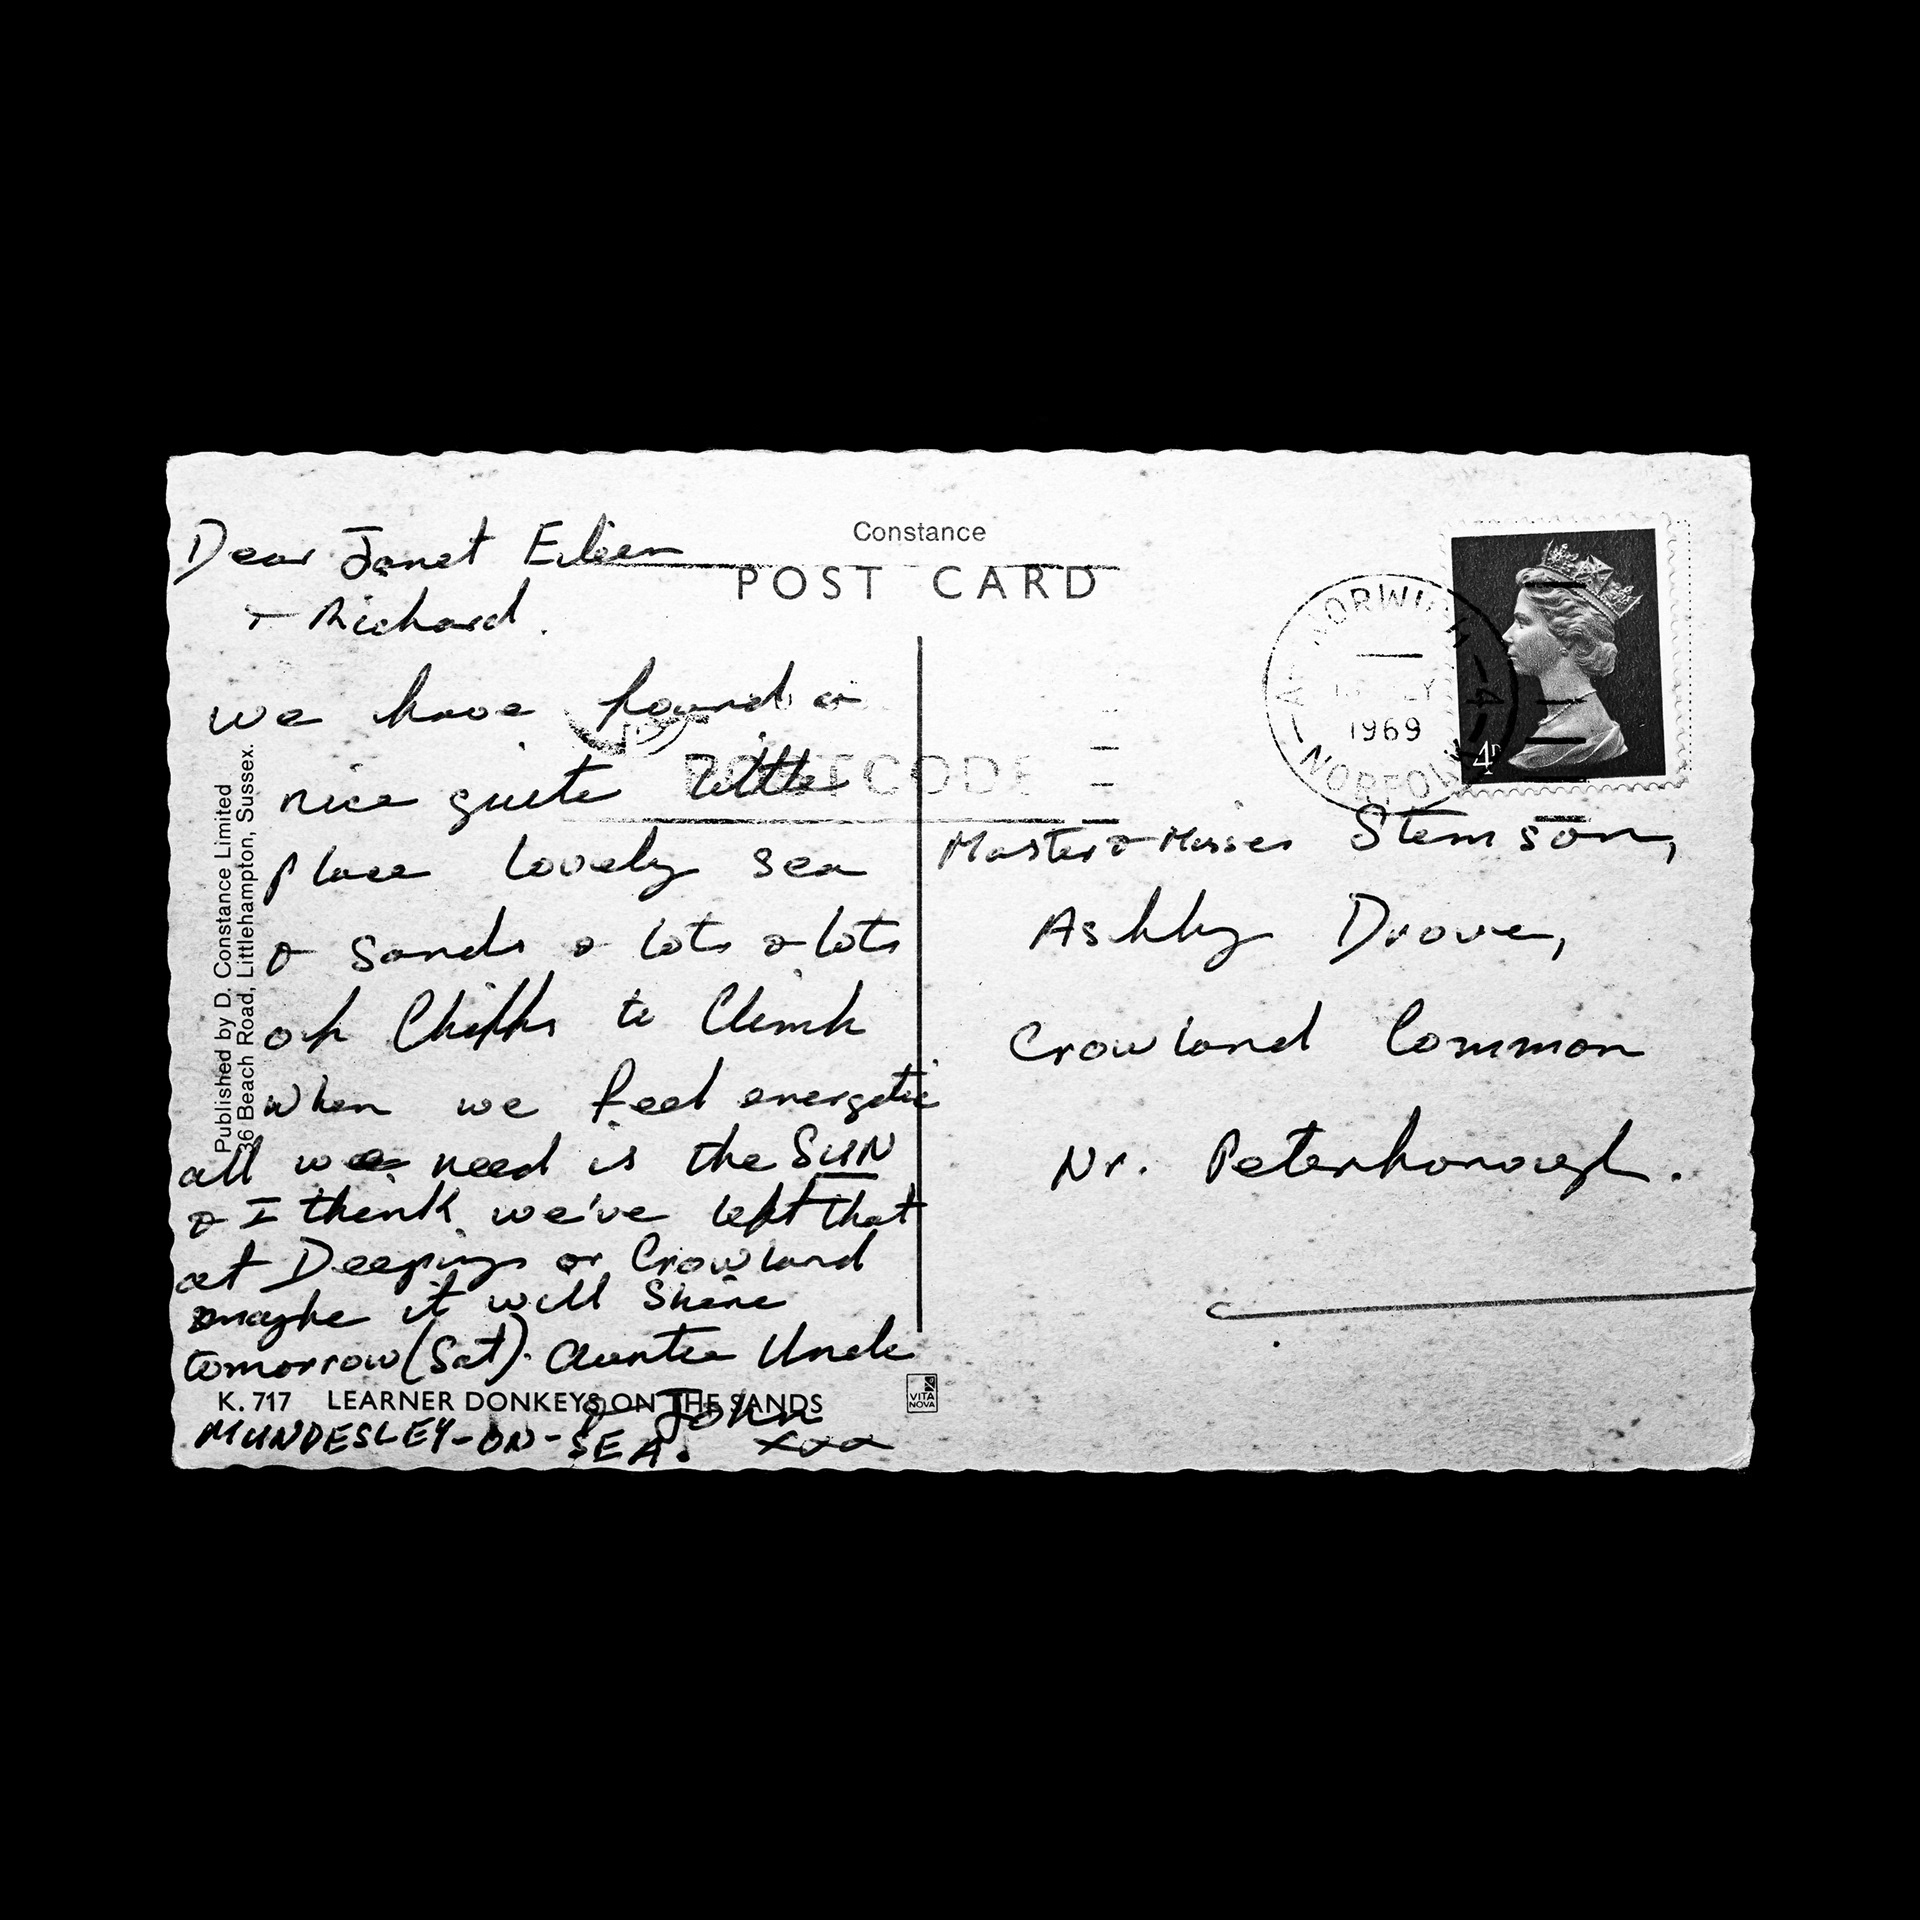 Dear Janet Eileen
& Richard.
we have found a
nice quite little
place lovely sea
& sands & lots & lots
of Chiffs to Climb
when we feel energetic
all we need is the SUN
& I think we've left that
at Deepings or Crowland
maybe it will Shine
tomorrow (Sat). Auntie Uncle
& John
xxx
MUNDESLEY-ON-SEA.
K. 717 LEARNER DONKEYS ON THE SANDS
Published by D. Constance Limited
36 Beach Road, Littlehampton, Sussex.
Constance
POST CARD
POSTCODE
NORWICH
1969
NORFOLK
A
4D
Master & Misses Stemson,
Ashby Drove,
Crowland Common
Nr. Peterborough.
VITA
NOVA